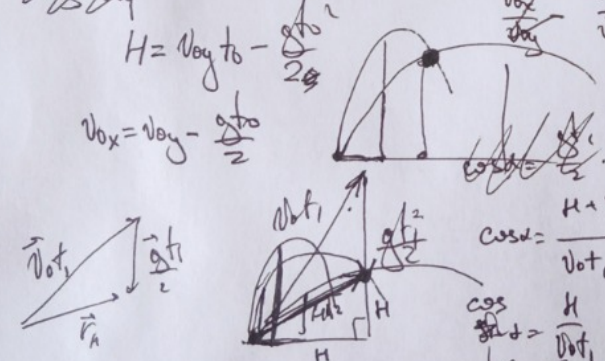 H = v₀y t₀ - gt₀²/2
v₀x = v₀y - gt₀/2
v₀x/v₀y
cosα =
v₀t₁
gt₁²/2
H
H
v⃗₀t₁
g⃗t₁/2
cosα = H + / v₀t₁
cos
α = H/v₀t₁